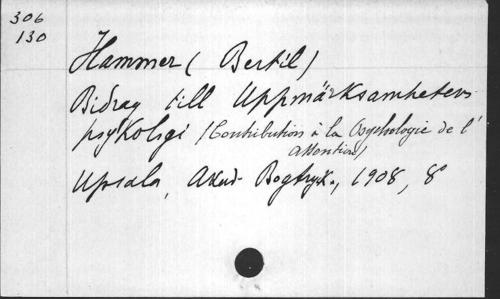 306
130
Hammer ( Bertil)
Bidrag till Uppmärksamhetens
psykologi (Contribution à la Psychologie de l'
Attention)
Upsala, Akad. Bogtryk., 1908, 8°